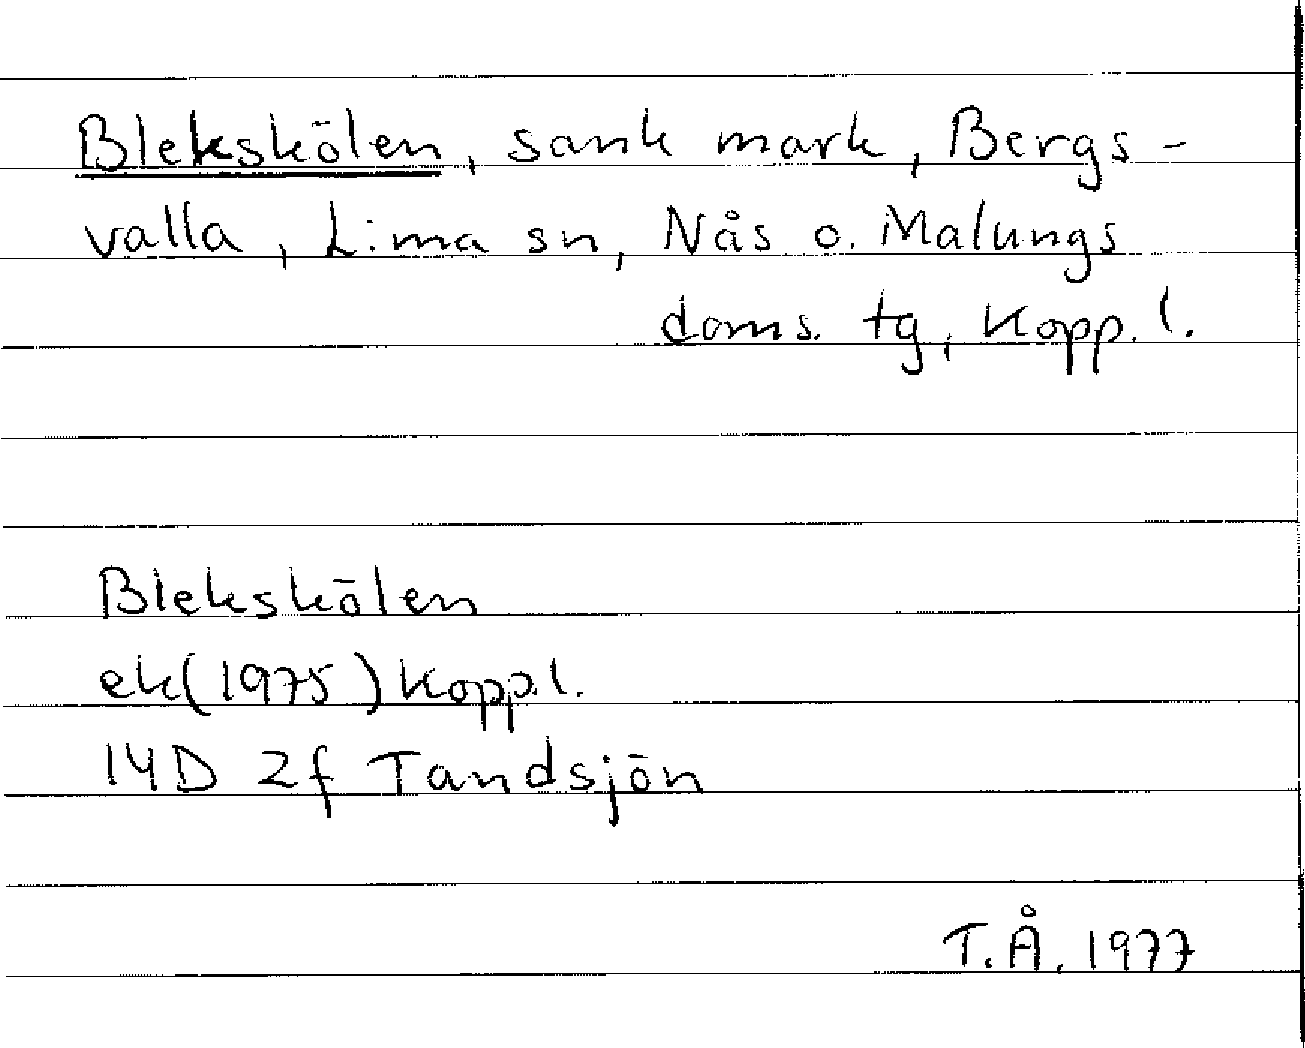 Blekskölen, sank mark, Bergs-
valla, Lima sn, Nås o. Malungs
doms. tg, Kopp. l.
Blekskölen
ek(1975) Kopp.l.
14D 2f Tandsjön
T.Å. 1977